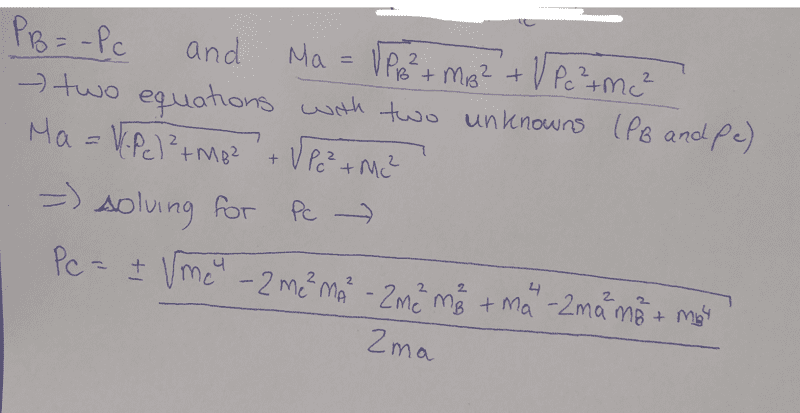 PB = -Pc and Ma = √(PB² + mB²) + √(Pc² + mc²)
→ two equations with two unknowns (PB and Pc)
Ma = √((-Pc)² + MB²) + √(Pc² + Mc²)
=> solving for Pc →
Pc = ± √(mc⁴ - 2mc²mA² - 2mc²mB² + ma⁴ - 2ma²mB² + mB⁴)
2ma